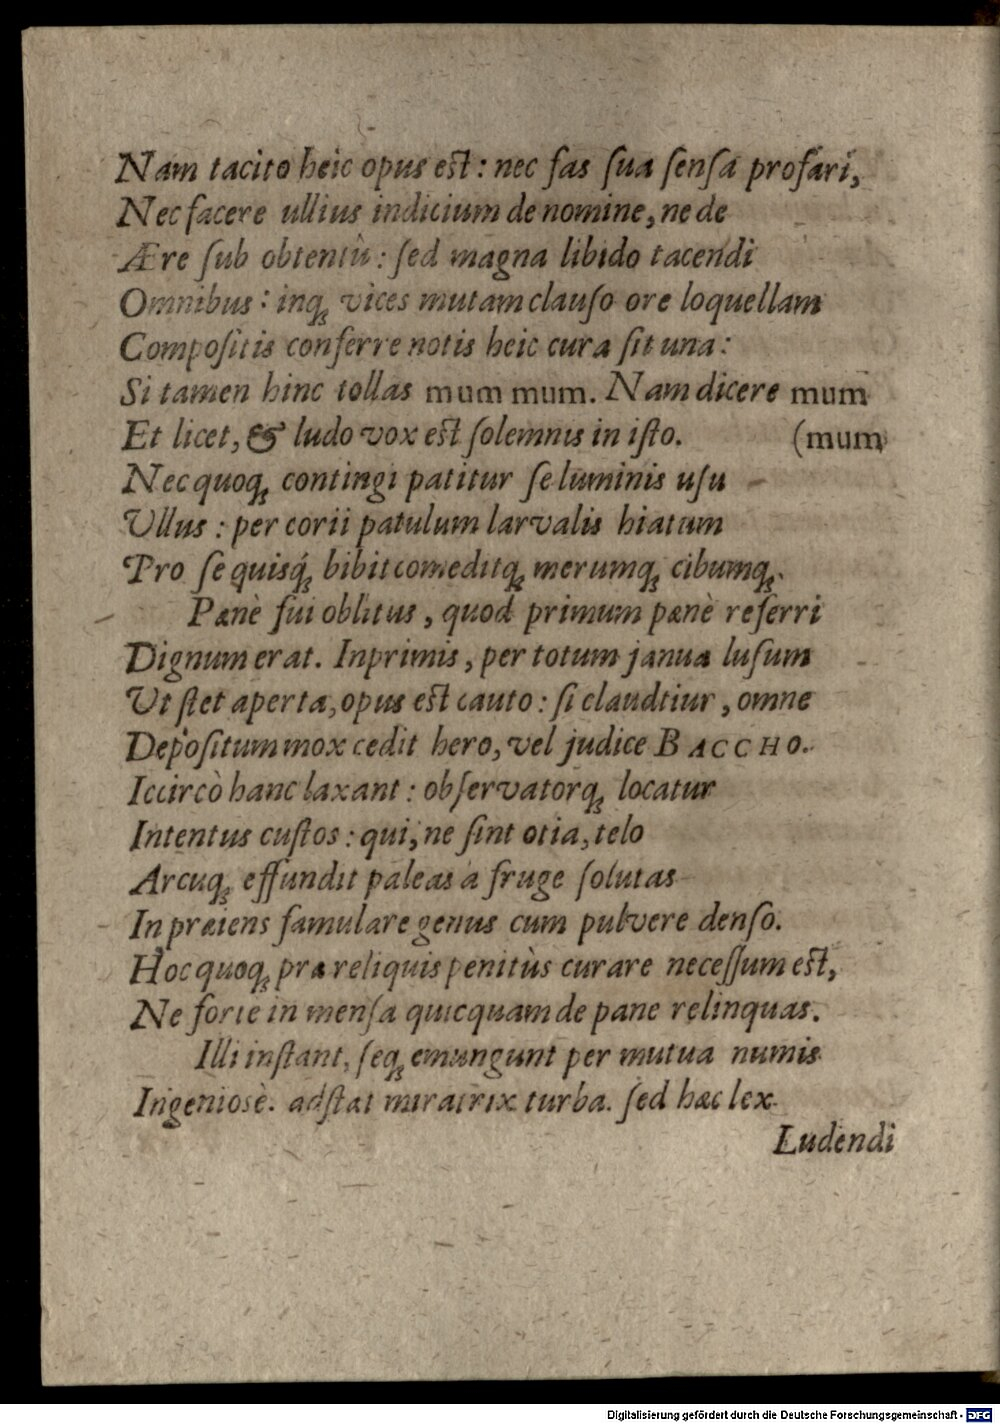 Nam tacito heic opus est: nec fas ſua ſenſa profari,
Nec facere ullius indicium de nomine, ne de
Ære ſub obtentù: ſed magna libido tacendi
Omnibus: inq; vices mutam clauſo ore loquellam
Compoſitis conferre notis heic cura ſit una:
Si tamen hinc tollas mum mum. Nam dicere mum
Et licet, & ludo vox est ſolemnis in iſto. (mum
Nec quoq; contingi patitur ſe luminis uſu
Ullus: per corii patulum larvalis hiatum
Pro ſe quisq́; bibit comeditq; merumq; cibumq;.
Pænè fui oblitus, quod primum pænè referri
Dignum erat. Inprimis, per totum janua luſum
Ut ſtet aperta, opus est cauto: ſi claudtiur, omne
Depoſitum mox cedit hero, vel judice BACCHO.
Iccircò hanc laxant: obſervatorq; locatur
Intentus cuſtos: qui, ne ſint otia, telo
Arcuq; effundit paleas à fruge ſolutas
In præiens famulare genus cum pulvere denſo.
Hoc quoq; præ reliquis penitùs curare neceſſum est,
Ne forte in menſa quicquam de pane relinquas.
Illi inſtant, ſeq; emungunt per mutua numis
Ingeniosè. adſtat miratrix turba. ſed hæc lex
Ludendi
Digitalisierung gefördert durch die Deutsche Forschungsgemeinschaft - DFG